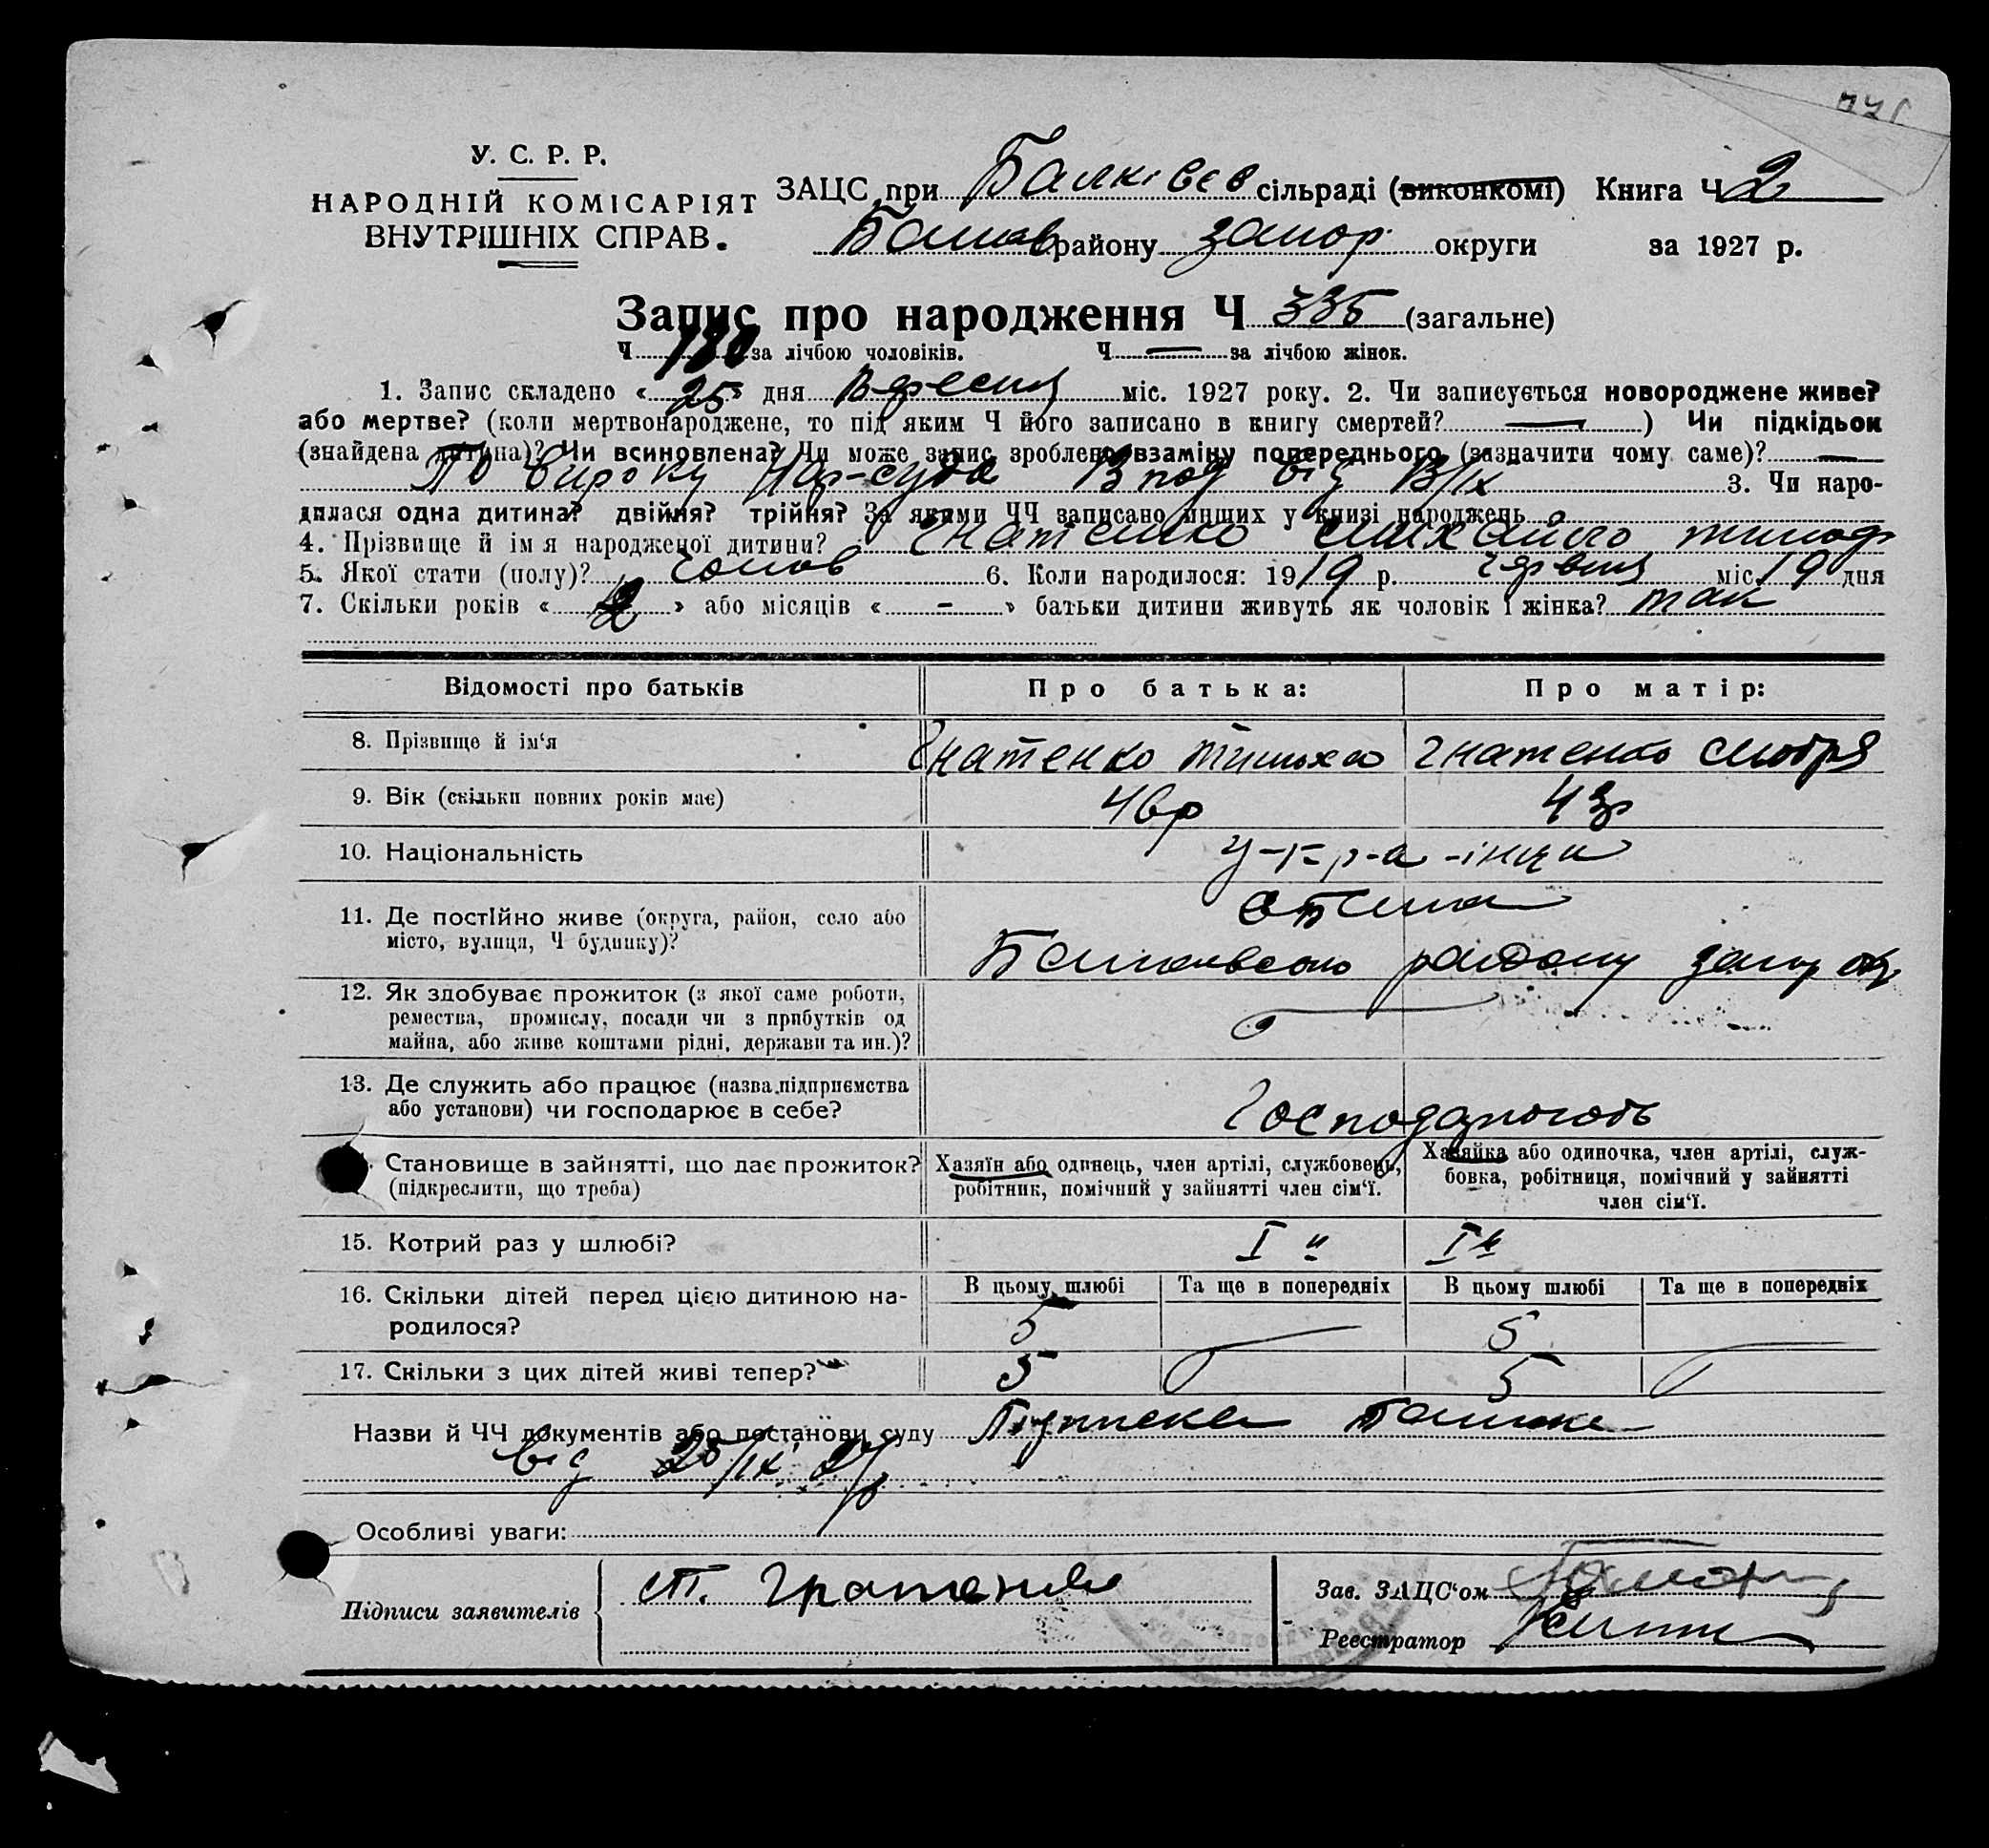 У. С. Р. Р.
НАРОДНІЙ КОМІСАРІЯТ
ВНУТРІШНІХ СПРАВ.
ЗАЦС при Балківсв сільраді (виконкомі) Книга Ч 2
району Запор округи за 1927 р.
Запис про народження Ч 335 (загальне)
Ч 180 за лічбою чоловіків. Ч — за лічбою жінок.
1. Запис складено « 25 » дня Вересня міс. 1927 року. 2. Чи записується новороджене живе?
або мертве? (коли мертвонароджене, то під яким Ч його записано в книгу смертей? — ) Чи підкідьок
(знайдена дитина)? Чи всиновлена? Чи може запис зроблено взаміну попереднього (зазначити чому саме)? —
По вироку Нар-суда від 3. Чи наро-
дилася одна дитина? двійня? трійня? За якими ЧЧ записано инших у книзі народжень
4. Прізвище й ім я народженої дитини? Гнатенко Михайло Тимоф
5. Якої стати (полу)? Чолов 6. Коли народилося: 1919 р. Червня міс 19 дня
7. Скільки років « 2 » або місяців « - » батьки дитини живуть як чоловік і жінка? так
Відомості про батьків
Про батька:
Про матір:
8. Прізвище й ім'я
Гнатенко Тимоха
Гнатенко
9. Вік (скільки повних років має)
46р
43р
10. Національність
у-к-р-а-інци
11. Де постійно живе (округа, район, село або
місто, вулиця, Ч будинку)?
району Запор окр
12. Як здобуває прожиток (з якої саме роботи,
ремества, промислу, посади чи з прибутків од
майна, або живе коштами рідні, держави та ин.)?
13. Де служить або працює (назва підприємства
або установи) чи господарює в себе?
Господарюють
Становище в зайнятті, що дає прожиток?
(підкреслити, що треба)
Хазяїн або одинець, член артілі, службовець,
робітник, помічний у зайнятті член сім'ї.
Хазяйка або одиночка, член артілі, служ-
бовка, робітниця, помічний у зайнятті
член сім'ї.
15. Котрий раз у шлюбі?
І й
І й
16. Скільки дітей перед цією дитиною на-
родилося?
В цьому шлюбі
Та ще в попередніх
В цьому шлюбі
Та ще в попередніх
5
5
17. Скільки з цих дітей живі тепер?
5
5
Назви й ЧЧ документів або постанови суду Підписка
від 25/IX 27р
Особливі уваги:
Підписи заявителів
Т. Гнатенко
Зав. ЗАЦС'ом
Реєстратор